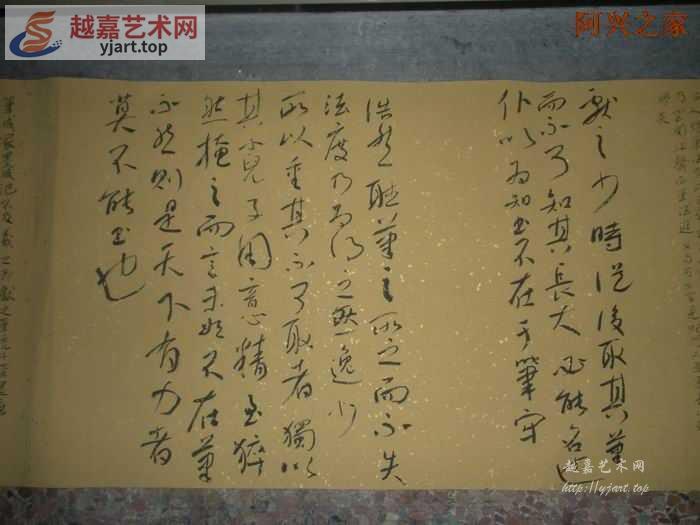 越嘉艺术网
yjart.top
阿兴之家
献之少時從後取其筆
而不可知其長大必能名世
仆以為知書不在于筆牢
浩然聽筆之所之而不失
法度乃為得之然逸少
所以重其不可取者獨以
其小兒子用意精至猝
然掩之而意未始不在筆
不然則是天下有力者
莫不能書也
越嘉艺术网
http://yjart.top